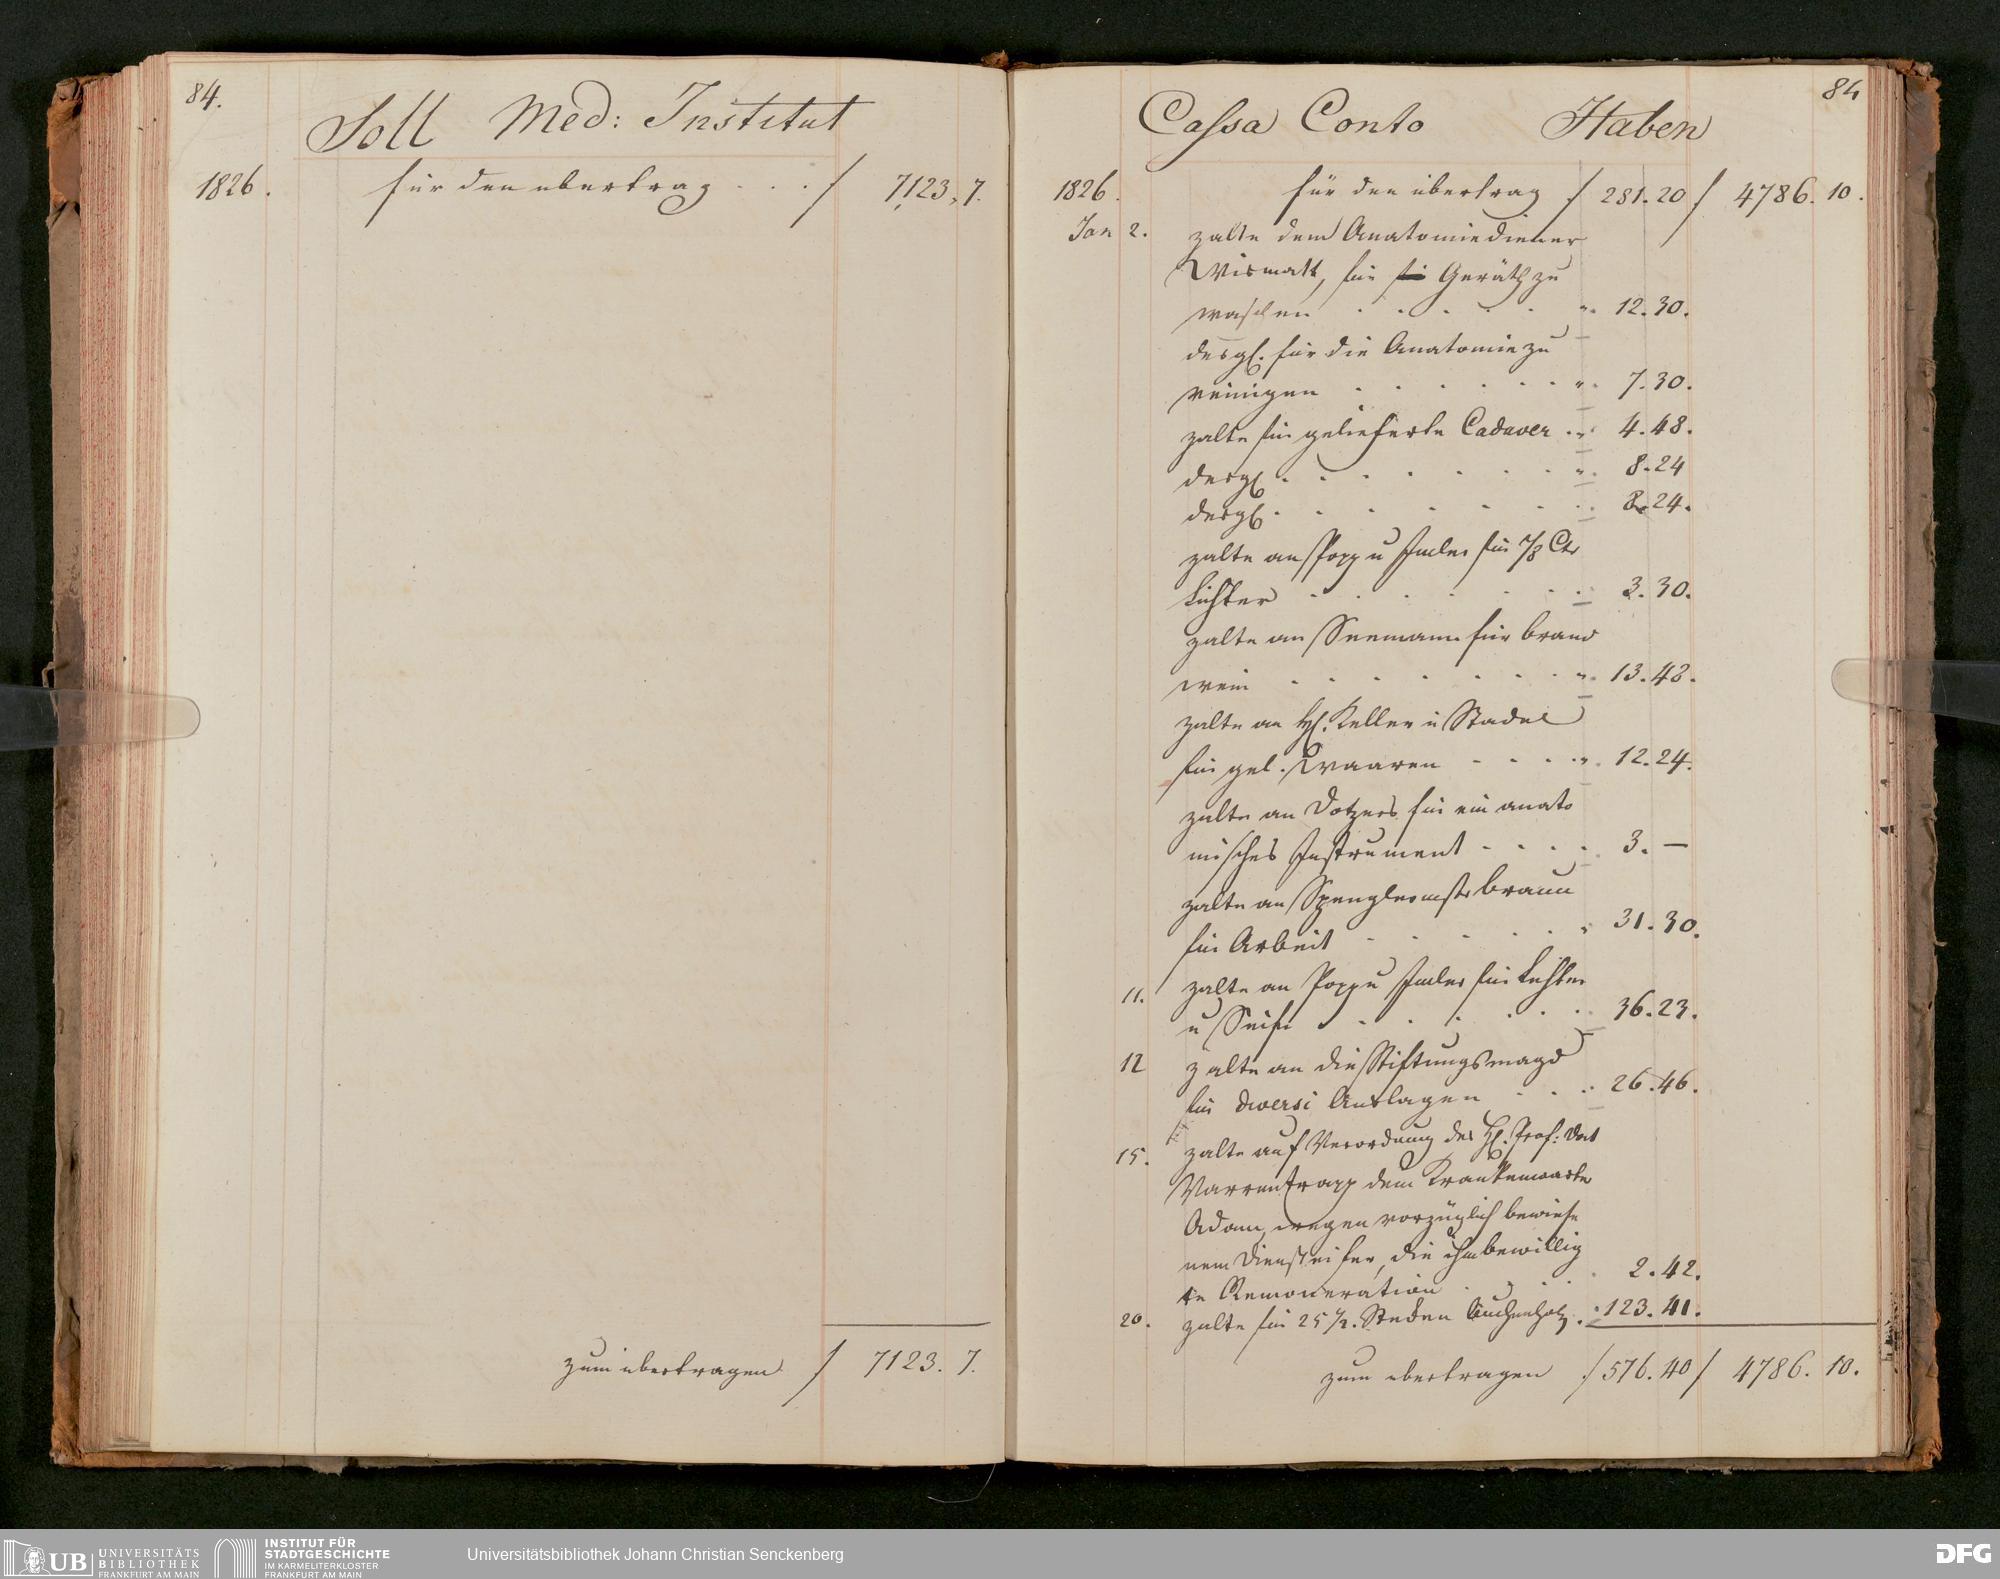 84.
Soll Med: Institut
1826. für den ubertrag . . . f 7123, 7.
zum ubertragen f 7123. 7.
84
Cassa Conto Haben
1826. für den übertrag f 281.20 f 4786.10.
Jan 2. zalte dem Anatomiediener
für Geräth zu
waschen . . . . . 12.30.
desgl. für die Anatomie zu
reinigen . . . . . . 7.30.
zalte für gelieferte Cadaver . 4.48.
desgl . . . . . . 8.24
desgl . . . . . . 8.24.
zalte an Popp u für 7/8 Ctr
Lichter . . . . . . 3.30.
zalte an Seemann für brand
wein . . . . . . 13.48.
zalte an H. Keller u Stadel
für gel. Waaren . . . . 12.24.
zalte an für ein anato
misches Instrument . . . . 3. —
zalte an Spenglermstr braun
für Arbeit . . . . . 31.30.
11. zalte an Popp u für Lichter
u Seife . . . . . . 36.23.
12 zalte an die Stiftungsmagd
für diversi Auslagen . . . 26.46.
15. zalte auf Verordnung des H. Prof:
Varrentrapp dem Krankenwärter
Adam, wegen vorzüglich bewiese
nem Diensteifer, die ihm bewillig
te Remoneration . . . 2.42.
20. zalte für 25 1/2. Stecken Buchenholz . 123.41.
zum ubertragen f 576.40 f 4786.10.
UB UNIVERSITÄTS
BIBLIOTHEK
FRANKFURT AM MAIN
INSTITUT FÜR
STADTGESCHICHTE
IM KARMELITERKLOSTER
FRANKFURT AM MAIN
Universitätsbibliothek Johann Christian Senckenberg
DFG